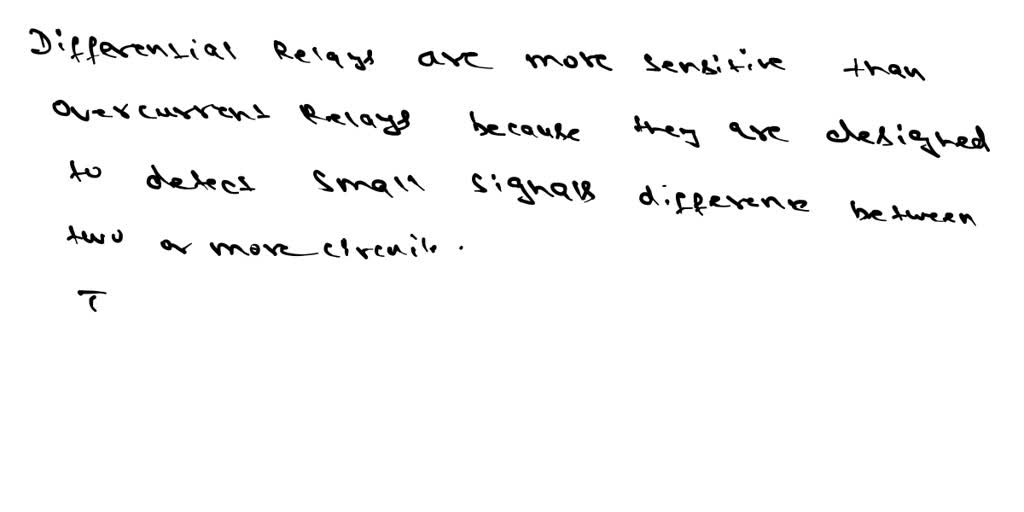 Differential Relays are more sensitive than
overcurrent Relays because they are designed
to detect small signals difference between
two or more circuits.
T